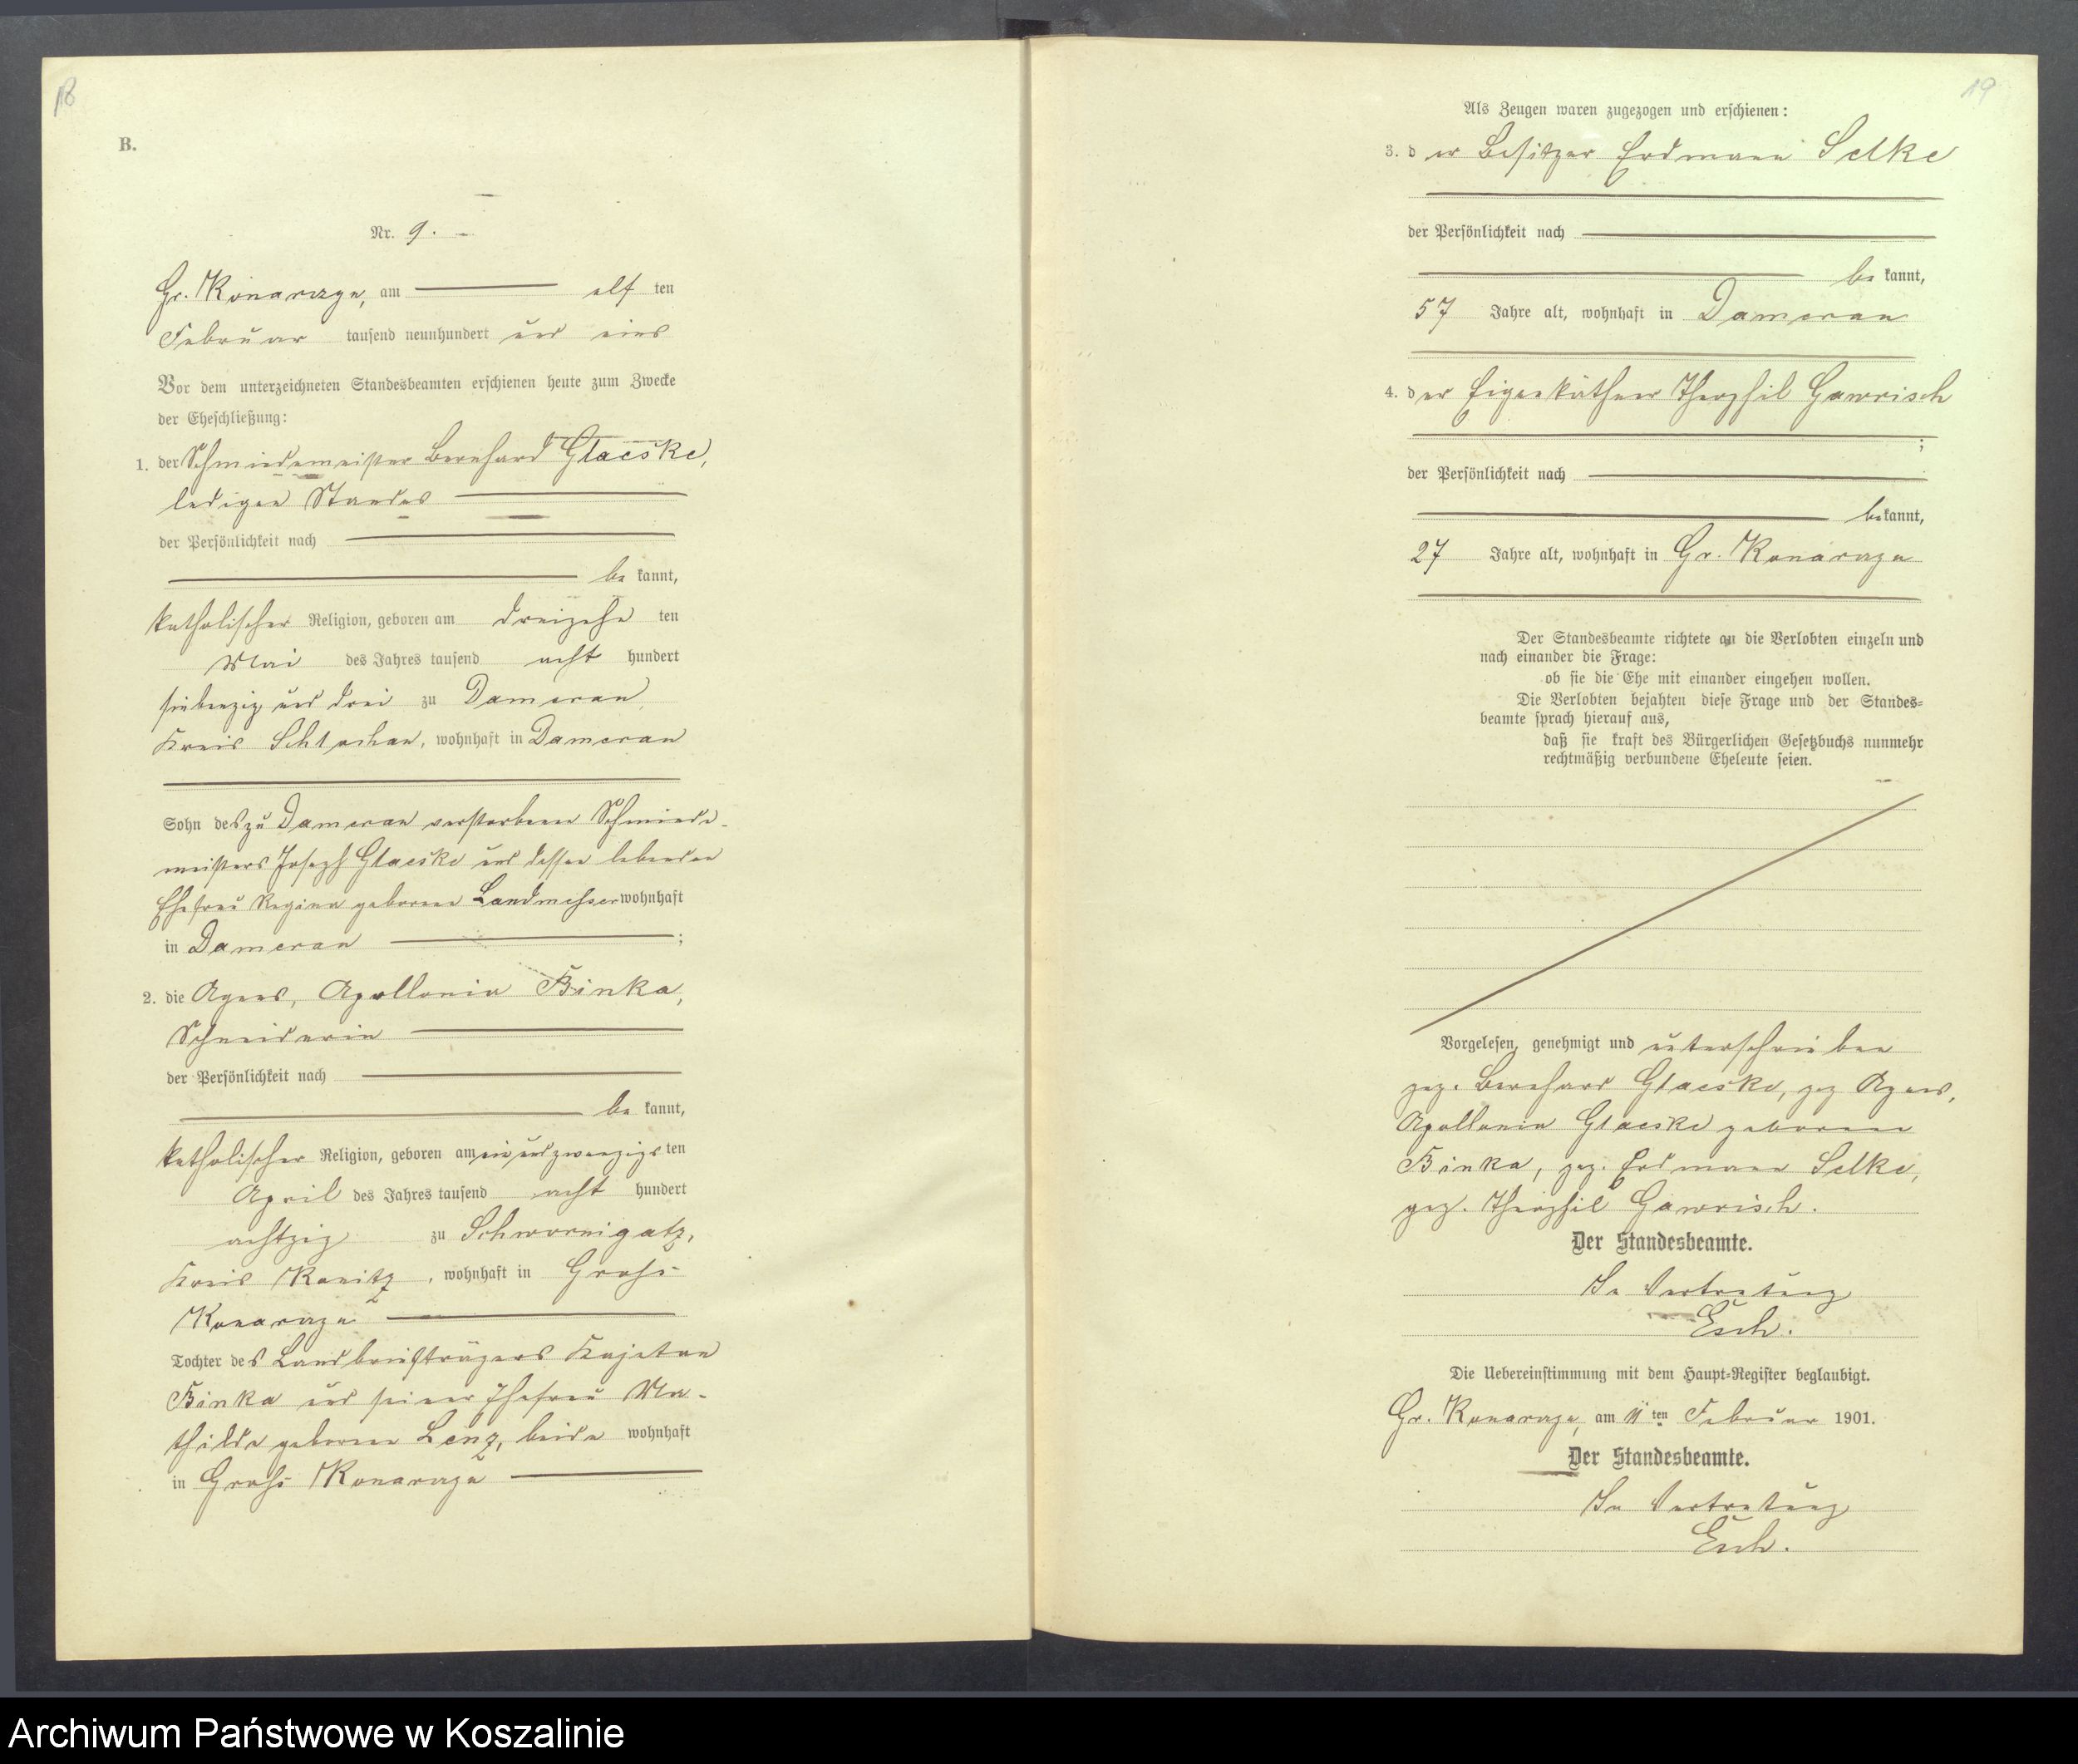 18
B.
Nr. 9.
Gr. Konarczyn, am elf ten
Februar tausend neunhundert und eins
Vor dem unterzeichneten Standesbeamten erschienen heute zum Zwecke
der Eheschließung:
1. der Schmiedemeister Bernhard Glaeske,
ledigen Standes
der Persönlichkeit nach
be kannt,
katholischer Religion, geboren am dreizehn ten
Mai des Jahres tausend acht hundert
siebenzig und drei zu Damerau
Kreis Schlochau, wohnhaft in Damerau
Sohn des zu Damerau verstorbenen Schmiede-
meisters Joseph Glaeske und dessen lebenden
Ehefrau Regina geborene Landmesser wohnhaft
in Damerau ;
2. die Agnes, Apollonia Binka,
Schneiderin
der Persönlichkeit nach
be kannt,
katholischer Religion, geboren am ein und zwanzigs ten
April des Jahres tausend acht hundert
achtzig zu Schwornigatz,
Kreis Konitz, wohnhaft in Groß
Konarzyn
Tochter des Landbriefträgers Kajetan
Binka und seiner Ehefrau Ma-
thilde geborene Lenz, beide wohnhaft
in Groß Konarzyn
19
Als Zeugen waren zugezogen und erschienen:
3. der Besitzer Erdmann Selke
der Persönlichkeit nach
be kannt,
57 Jahre alt, wohnhaft in Damerau
4. der Eigenkäthner Theophil Gawrisch
;
der Persönlichkeit nach
be kannt,
27 Jahre alt, wohnhaft in Gr. Konarzyn
Der Standesbeamte richtete an die Verlobten einzeln und
nach einander die Frage:
ob sie die Ehe mit einander eingehen wollen.
Die Verlobten bejahten diese Frage und der Standes-
beamte sprach hierauf aus,
daß sie kraft des Bürgerlichen Gesetzbuchs nunmehr
rechtmäßig verbundene Eheleute seien.
Vorgelesen, genehmigt und unterschrieben
gez. Bernhard Glaeske, gez Agnes,
Apollonia Glaeske geborene
Binka, gez. Erdmann Selke,
gez. Theophil Gawrisch.
Der Standesbeamte.
In Vertretung
Esch.
Die Uebereinstimmung mit dem Haupt-Register beglaubigt.
Gr. Konarzyn, am 11 ten Februar 1901.
Der Standesbeamte.
In Vertretung
Esch.
Archiwum Państwowe w Koszalinie